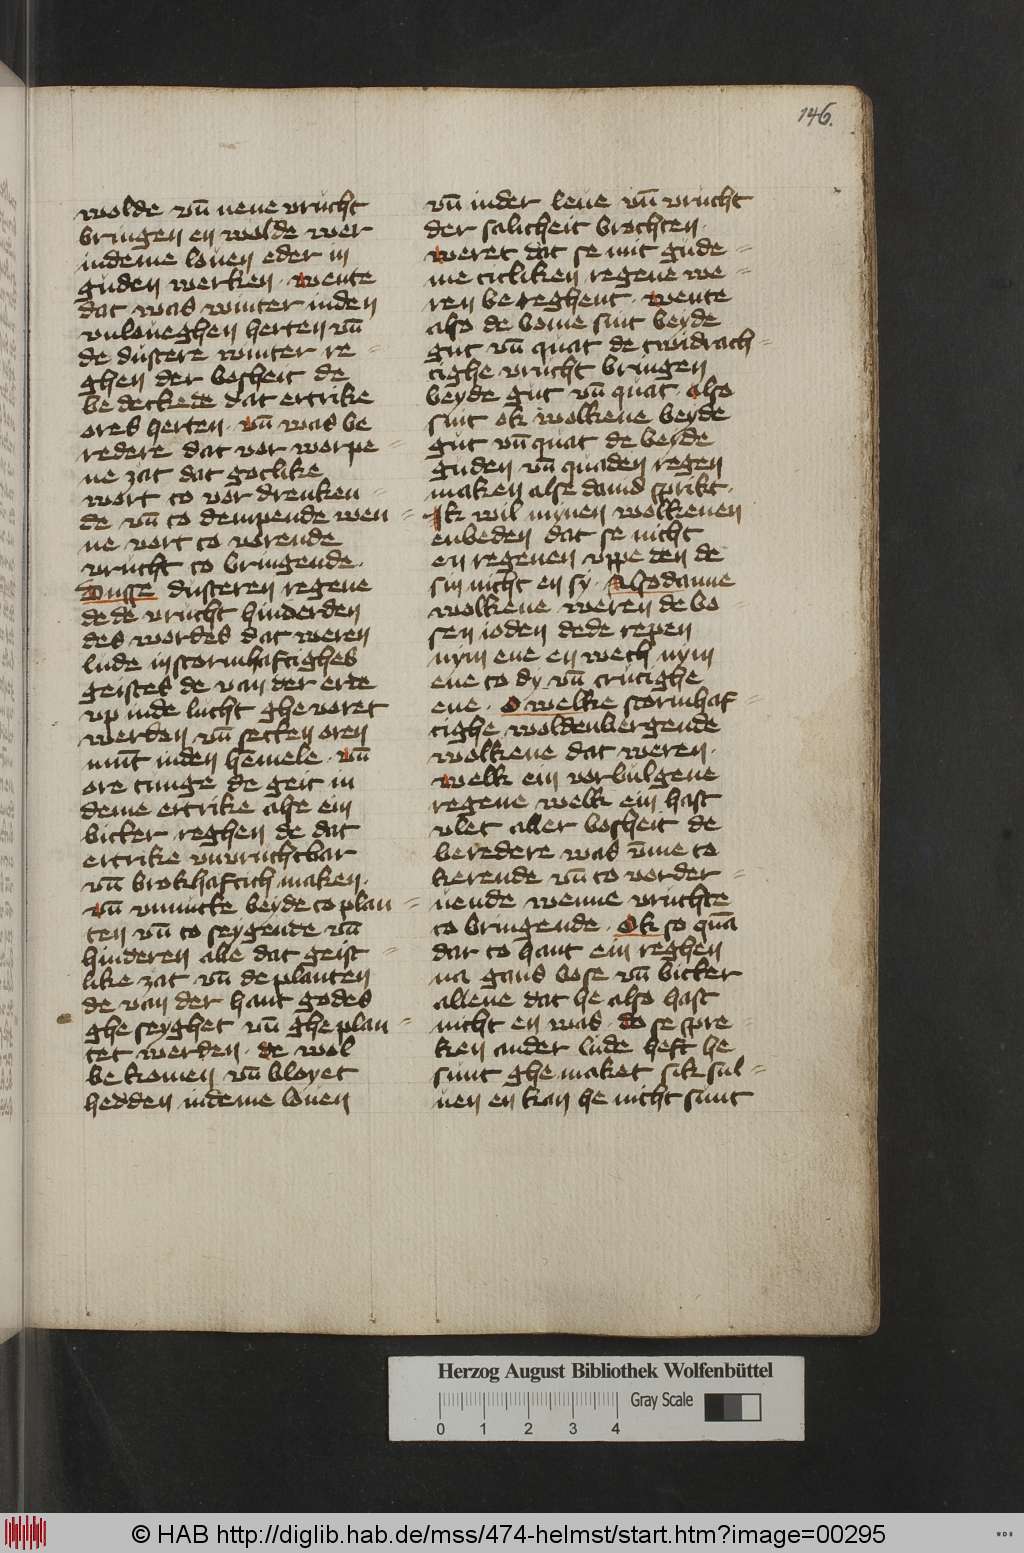 146.
wolde vn̄ nene vrucht
bringen en wolde wer
indeme louen eder in
guden werken · wente
dat was winter inden
vnloueghen herten vn̄
de dustere winter re=
ghen der bosheit de
be deckede dat ertrike
ores herten · vn̄ was be
redere dat vor worpe=
ne zat dat gotlike
wort to vor drenken=
de vn̄ to dempende wen=
ne vort to vorende
vrucht to bringende ·
Dusse dusteren regene
de de vrucht hinderden
des wordes dat weren
lude instormhaftighes
geistes de van der erde
vp inde lucht ghe voret
werden vn̄ setten oren
munt inden hemele · vn̄
ore tunge de geit in
deme ertrike alse ein
bicker reghen de dat
ertrike vnvruchtbar
vn̄ brokhaftich maken ·
vn̄ vnnutte beyde to plan=
ten vn̄ to seygende vn̄
hinderen alle dat geist=
like zat vn̄ de planten
de van der hant godes
ghe seyghet vn̄ ghe plan=
tet werden · de wol
be komen vn̄ bloyet
hedden indeme louen
vn̄ inder leue vn̄ vrucht
der salicheit brochten ·
weret dat se mit gude=
me titliken regene we=
ren be reghent · wente
also de bome sint beyde
gut vn̄ quat de twidrach=
tighe vrucht bringen
beyde gut vn̄ quat · also
sint ok wolkene beyde
gut vn̄ quat de beyde
guden vn̄ quaden regen
maken alse dauid sprikt ·
Ik wil mynen wolkenen
enbeden dat se nicht
en regenen vppe den de
sin nicht en sy · Alsodanne
wolkene weren de bo=
sen ioden dede repen
nym ene en wech nym
ene to dy vn̄ crucighe
ene · O welke stormhaf=
tighe woldenbergende
wolkene dat weren ·
welk ein vorbulgene
regene welk ein hast
vlet aller bosheit de
beredere was v̄me to
kerende vn̄ to vorder=
uende wenne vruchte
to bringende · Ok so quā
dar to hant ein reghen
na gans bose vn̄ bicker
allene dat he also hast
nicht en was · do se spre
ken ander lude heft he
sunt ghe maket sik sul=
uen en kan he nicht sunt
Herzog August Bibliothek Wolfenbüttel
Gray Scale
0 1 2 3 4
© HAB http://diglib.hab.de/mss/474-helmst/start.htm?image=00295
WDB